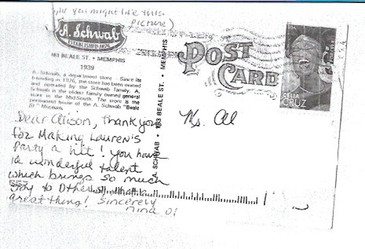 you might like this
picture)
A. Schwab
ESTABLISHED 1876
163 BEALE ST. • MEMPHIS
1939
A. Schwab, a dry goods store. Since its
founding in 1876, the store has been owned
and operated by the Schwab family. A.
Schwab is the oldest family owned general
store in the Mid-South. The store is the
A. SCHWAB • 163 BEALE ST. • MEMPHIS
POST
CARD
CRUZ
Dear Alison, thank you
for Making Lauren's
Party a hit! you have
a wonderful talent
which brings so much
joy to others
great thing! Sincerely
Ms. Al